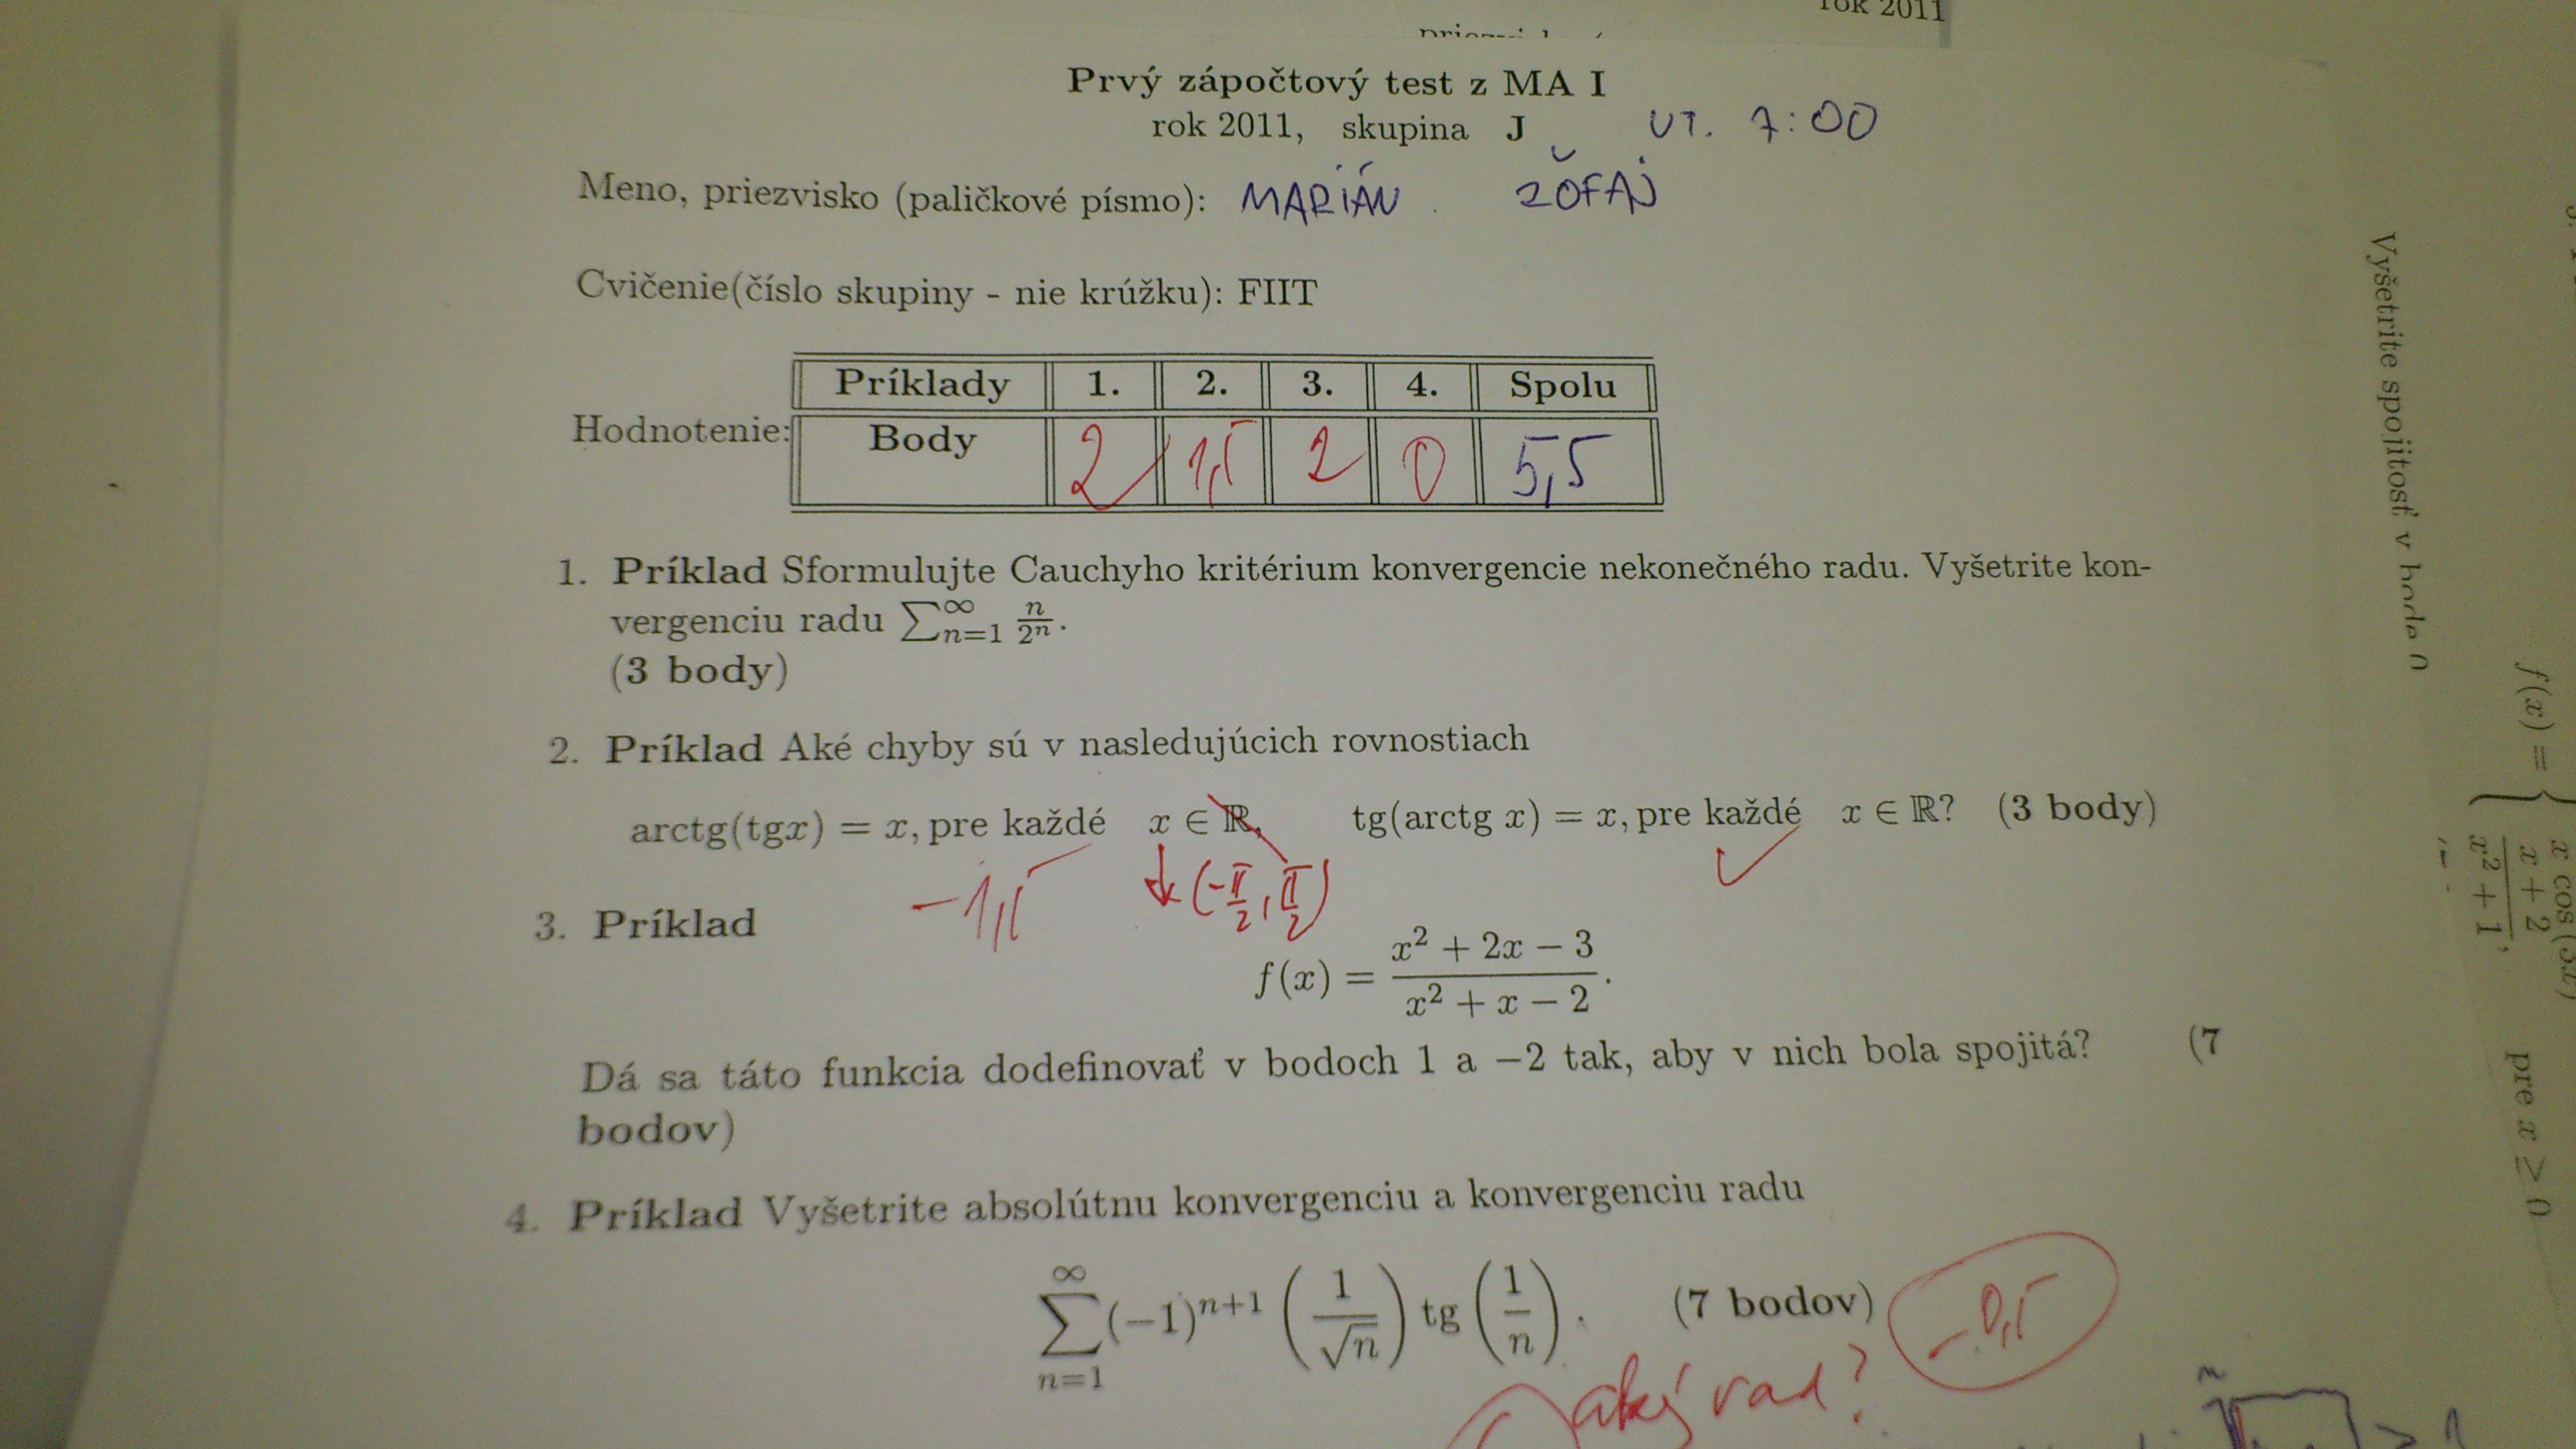 rok 2011
Prvý zápočtový test z MA I
rok 2011, skupina J UT. 7:00
Meno, priezvisko (paličkové písmo): MARIÁN ŽOFAJ
Cvičenie(číslo skupiny - nie krúžku): FIIT
Príklady 1. 2. 3. 4. Spolu
Hodnotenie: Body 2 1,5 2 0 5,5
1. Príklad Sformulujte Cauchyho kritérium konvergencie nekonečného radu. Vyšetrite kon-
vergenciu radu ∑_{n=1}^{∞} n/2^n.
(3 body)
2. Príklad Aké chyby sú v nasledujúcich rovnostiach
arctg(tgx) = x, pre každé x ∈ ℝ, tg(arctg x) = x, pre každé x ∈ ℝ? (3 body)
-1,5 ↓ (-π/2, π/2) ✓
3. Príklad
f(x) = (x² + 2x − 3)/(x² + x − 2).
Dá sa táto funkcia dodefinovať v bodoch 1 a −2 tak, aby v nich bola spojitá? (7
bodov)
4. Príklad Vyšetrite absolútnu konvergenciu a konvergenciu radu
∑_{n=1}^{∞} (−1)^{n+1} (1/√n) tg (1/n). (7 bodov) -0,5
aký rad?
Vyšetrite spojitosť v bode 0
f(x) = { x cos(3x)
(x + 2)/(x² + 1), pre x ≥ 0